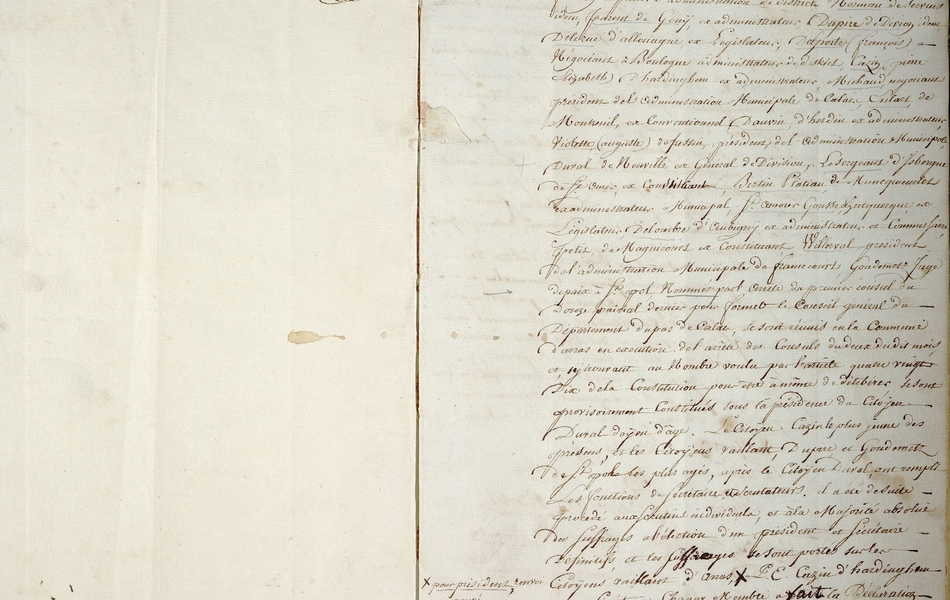 viden, parent de Gouy, ex administrateur Dupire de
Delerue d'allouagne ex Législateur, Delporte (françois)
Négociant à Boulogne administrateur de district Cazin pierre
Elizabeth) D'hardinghem ex administrateur, Michaud, negociant
president de l'administration Municipale de Calais, Enlart, de
Montreuil, ex Conventionnel Dauvin d'hesdin ex administrateur
Violette (auguste) president del administration Municipale
Duval de Neuville ex Général de Division,
de St omer, ex Constituant, Bertin Platiau de
exadministrateur Municipal St omer
Législateur Delombre d'Aubigny ex administrateur et Commissaire
petit de Magnicourt ex Constituant Willerval president
de l'administration Municipale de francourt Goudemetz Juge
depaix à St pol Nommés part arrêté du premier consul du
Douze prairial dernier pour former le Conseil général du
Département du pas de Calais, se sont réunis en la Commune
d'arras en execution de l'arrêté des Consuls du deux dudit mois
et, se trouvant au Nombre voulu par l'article quatre vingt
Dix de la Constitution pour être à même de délibérer se sont
provisoirement Constitués sous la présidence du Citoyen
Duval doyen d'âge. Le Citoyen Cazin le plus jeune des
presens, et les Citoyens vaillant, Dupire et Goudemetz
de St pol les plus agés, après le Citoyen Duval, ont rempli
Les fonctions de Sécretaire et scrutateurs. il a été de suite
procédé aux scrutins individuels, et à la Majorité absolue
du suffrages al'élection d'un président et Sécrétaire
Définitifs et les suffrages se sont portés sur les
Citoyens vaillant d'arras X P. E. Cazin d'hardinghem
X pour président,
Chaque Membre a fait la Déclaration